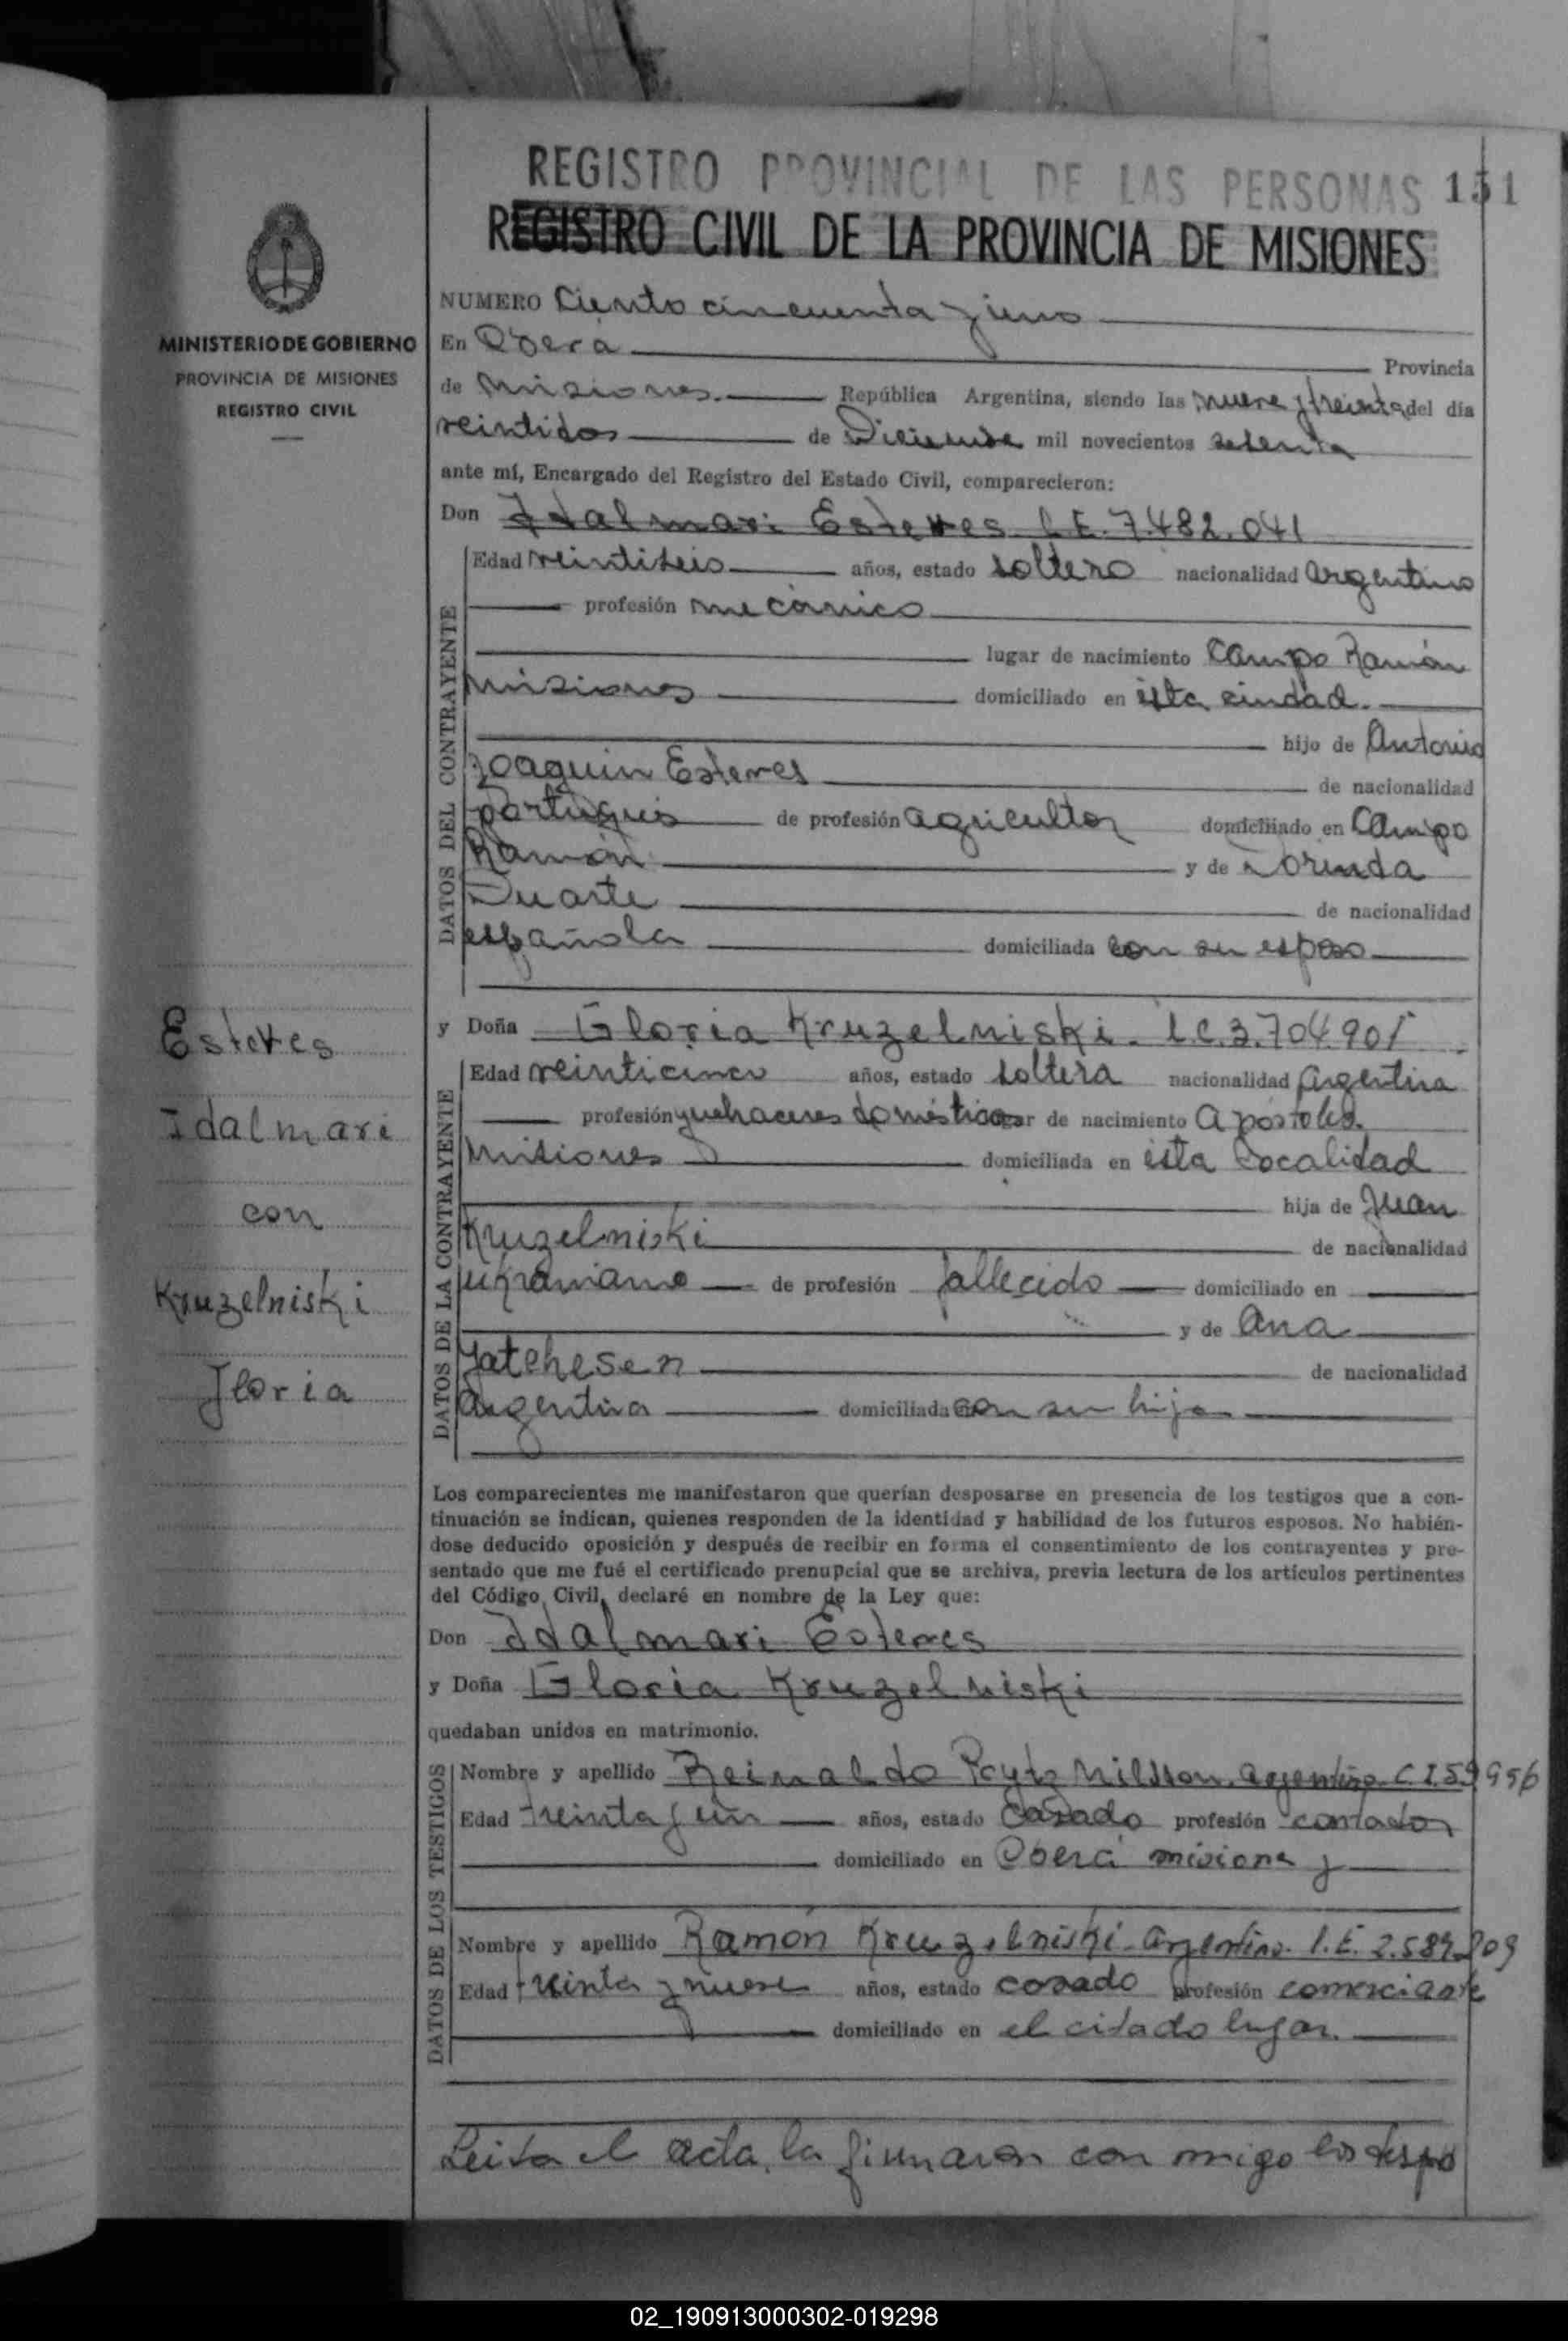 REGISTRO PROVINCIAL DE LAS PERSONAS 151
REGISTRO CIVIL DE LA PROVINCIA DE MISIONES
MINISTERIO DE GOBIERNO
PROVINCIA DE MISIONES
REGISTRO CIVIL
NUMERO Ciento cincuenta y uno
En Oberá Provincia
de Misiones República Argentina, siendo las nueve y treinta del día
veintidos de Diciembre mil novecientos setenta
ante mí, Encargado del Registro del Estado Civil, comparecieron:
Don Idalmari Esteves L.E. 7.482.041
DATOS DEL CONTRAYENTE
Edad veintiseis años, estado soltero nacionalidad argentino
profesión mecánico
lugar de nacimiento Campo Ramón
Misiones domiciliado en ésta ciudad.
hijo de Antonio
Joaquin Esteves de nacionalidad
portugués de profesión agricultor domiciliado en Campo
Ramón y de Dorinda
Duarte de nacionalidad
española domiciliada con su esposo
Esteves
Idalmari
con
Kruzelniski
Gloria
y Doña Gloria Kruzelniski. L.C. 3.704.901
DATOS DE LA CONTRAYENTE
Edad veinticinco años, estado soltera nacionalidad argentina
profesión quehaceres domésticos lugar de nacimiento Apóstoles.
Misiones domiciliada en ésta localidad
hija de Juan
Kruzelniski de nacionalidad
ukraniano de profesión fallecido domiciliado en
y de Ana
Jatchesen de nacionalidad
Argentina domiciliada con su hija
Los comparecientes me manifestaron que querían desposarse en presencia de los testigos que a con-
tinuación se indican, quienes responden de la identidad y habilidad de los futuros esposos. No habién-
dose deducido oposición y después de recibir en forma el consentimiento de los contrayentes y pre-
sentado que me fué el certificado prenupcial que se archiva, previa lectura de los artículos pertinentes
del Código Civil, declaré en nombre de la Ley que:
Don Idalmari Esteves
y Doña Gloria Kruzelniski
quedaban unidos en matrimonio.
DATOS DE LOS TESTIGOS
Nombre y apellido Reinaldo Nilsson. argentino C.I. 59956
Edad treinta y un años, estado casado profesión contador
domiciliado en Oberá misiones y
Nombre y apellido Ramón Kruzelniski - argentino. L.E. 2.589.209
Edad treinta y nueve años, estado casado profesión comerciante
domiciliado en el citado lugar.
Leida el acta, la firmaron con migo los despo
02_190913000302-019298